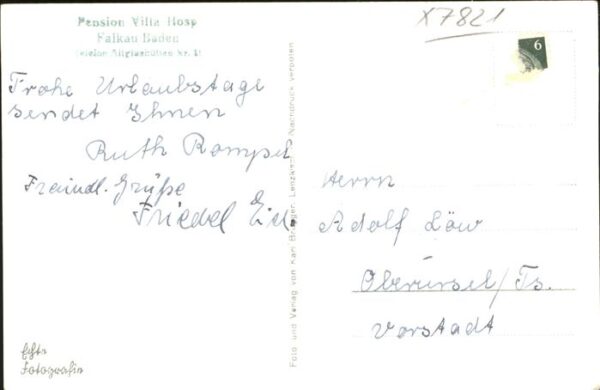 Pension Villa Hosp
Falkau Baden
Telefon Altglashütten Nr.
X7821
6
Frohe Urlaubstage
sendet Ihnen
Ruth Rompel
Freundl. Grüße
Friedel
Herrn
Adolf Löw
Oberursel/Ts.
Vorstadt
Foto und Verlag von Karl Lenzkirch Nachdruck verboten
Echte
Fotografie